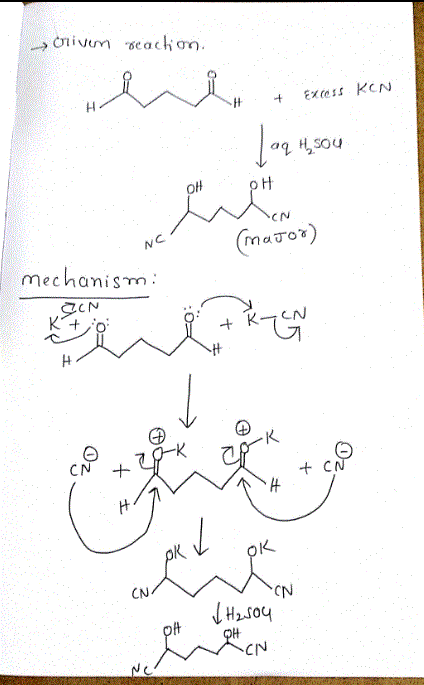 → Given reaction.
O O
H H + Excess KCN
aq H2SO4
OH OH
NC CN
(major)
mechanism:
CN
K + :O: O: + K-CN
H H
⊕ ⊕
CN⊖ + O-K O-K + CN⊖
H H
OK OK
CN CN
H2SO4
OH OH
NC CN